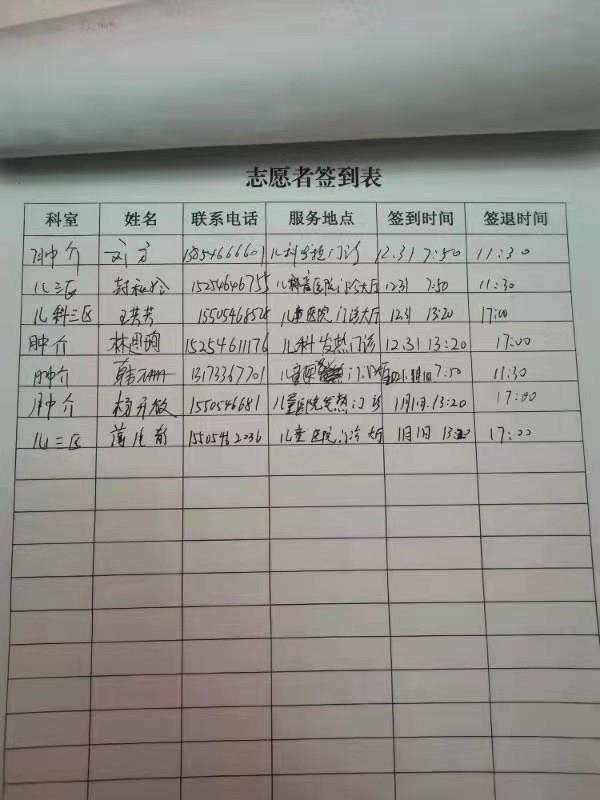 志愿者签到表
科室 姓名 联系电话 服务地点 签到时间 签退时间
肿介 刘方 15854666601 儿科发热门诊 12.31 7:50 11:30
儿三区 15254646755 儿童医院门诊大厅 12.31 7:50 11:30
儿科三区 王芳芳 15505468528 儿童医院门诊大厅 12.31 13:20 17:00
肿介 林思询 15254611176 儿科发热门诊 12.31 13:20 17:00
肿介 韩 13173367701 7:50 11:30
肿介 杨开敏 1550546681 儿童医院发热门诊 1月1日.13:20 17:00
儿三区 15505462036 儿童医院门诊大厅 1月1日 13:20 17:00